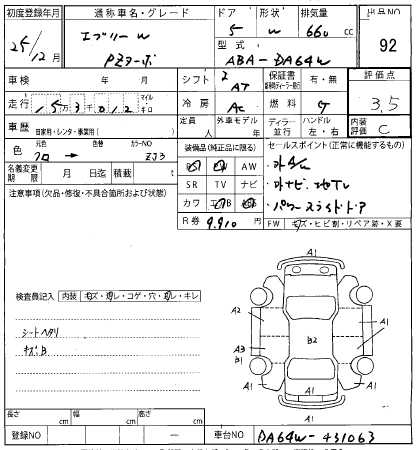 初度登録年月 通称車名・グレード ドア 形状 排気量 出品NO
25/12月 エブリーW PZターボ 5 W 660 cc 92
型式
ABA-DA64W
車検 年 月 シフト AT 保証書 有・無 評価点
走行 マイル キロ 冷房 AC 燃料 G 3.5
車歴 自家用・レンタ・事業用( ) 定員 人 外車モデル 年 ディーラー 並行 ハンドル 左・右 内装 C
色 元色 クロ 色替 カラーNO ZJ3
装備品(純正品に限る) セールスポイント(正常に機能するもの)
AW
SR TV ナビ
カワ
名義変更期限 月 日迄 積載 才
注意事項(欠品・修復・不具合箇所および状態)
外A/W
外ナビ 地TV
パワースライドドア
R券 9,910 円
FW キズ・ヒビ割・リペア跡・X要
検査員記入 内装 キズ・汚レ・コゲ・穴・破レ・キレ
シートヘタリ
キズB
A1
A1
A2
A1
B2
A3
B1
A1
A1
長さ cm 幅 cm 高さ cm
登録NO ― 車台NO DA64W-431063